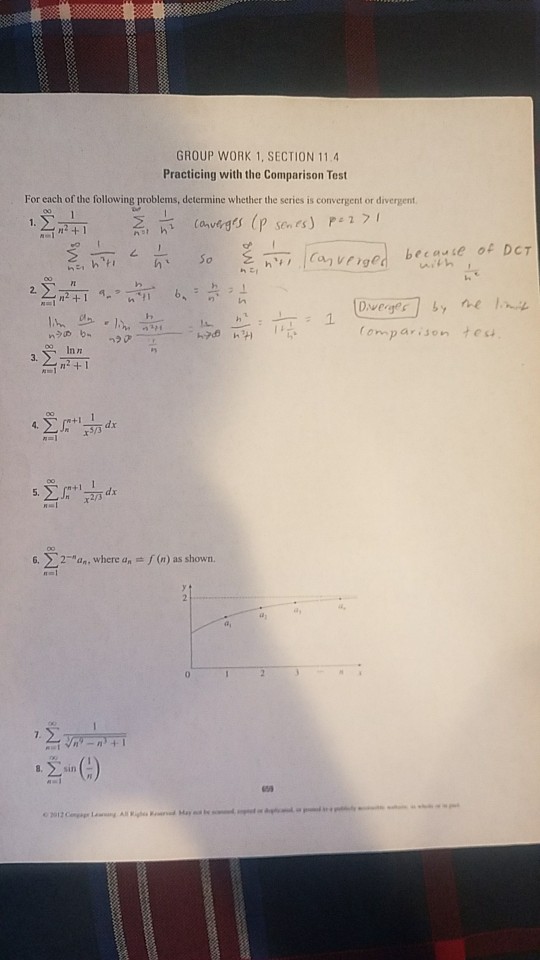 GROUP WORK 1, SECTION 11.4
Practicing with the Comparison Test
For each of the following problems, determine whether the series is convergent or divergent.
1. ∞∑n=1 1/(n² + 1) ∞∑n=1 1/n² converges (p series) p=2 > 1
∞∑n=1 1/(n²+1) < 1/n² so ∞∑n=1 1/(n²+1) Converges because of DCT with 1/n²
2. ∞∑n=1 n/(n² + 1) aₙ = n/(n²+1) bₙ = n/n² = 1/n
lim n→∞ aₙ/bₙ = lim n→∞ (n/(n²+1))/(1/n) = lim n→∞ n²/(n²+1) = 1/(1+1/n²) = 1 Diverges by the limit
comparison test.
3. ∞∑n=1 ln n/(n² + 1)
4. ∞∑n=1 ∫ₙⁿ⁺¹ 1/x^(5/3) dx
5. ∞∑n=1 ∫ₙⁿ⁺¹ 1/x^(2/3) dx
6. ∞∑n=1 2⁻ⁿaₙ, where aₙ = f (n) as shown.
y
2
a₁
0 1 2 3 n x
7. ∞∑n=1 1/∛(n⁹ − n³ + 1)
8. ∞∑n=1 sin (1/n)
659
© 2012 Cengage Learning. All Rights Reserved. May not be scanned, copied or duplicated, or posted to a publicly accessible website, in whole or in part.